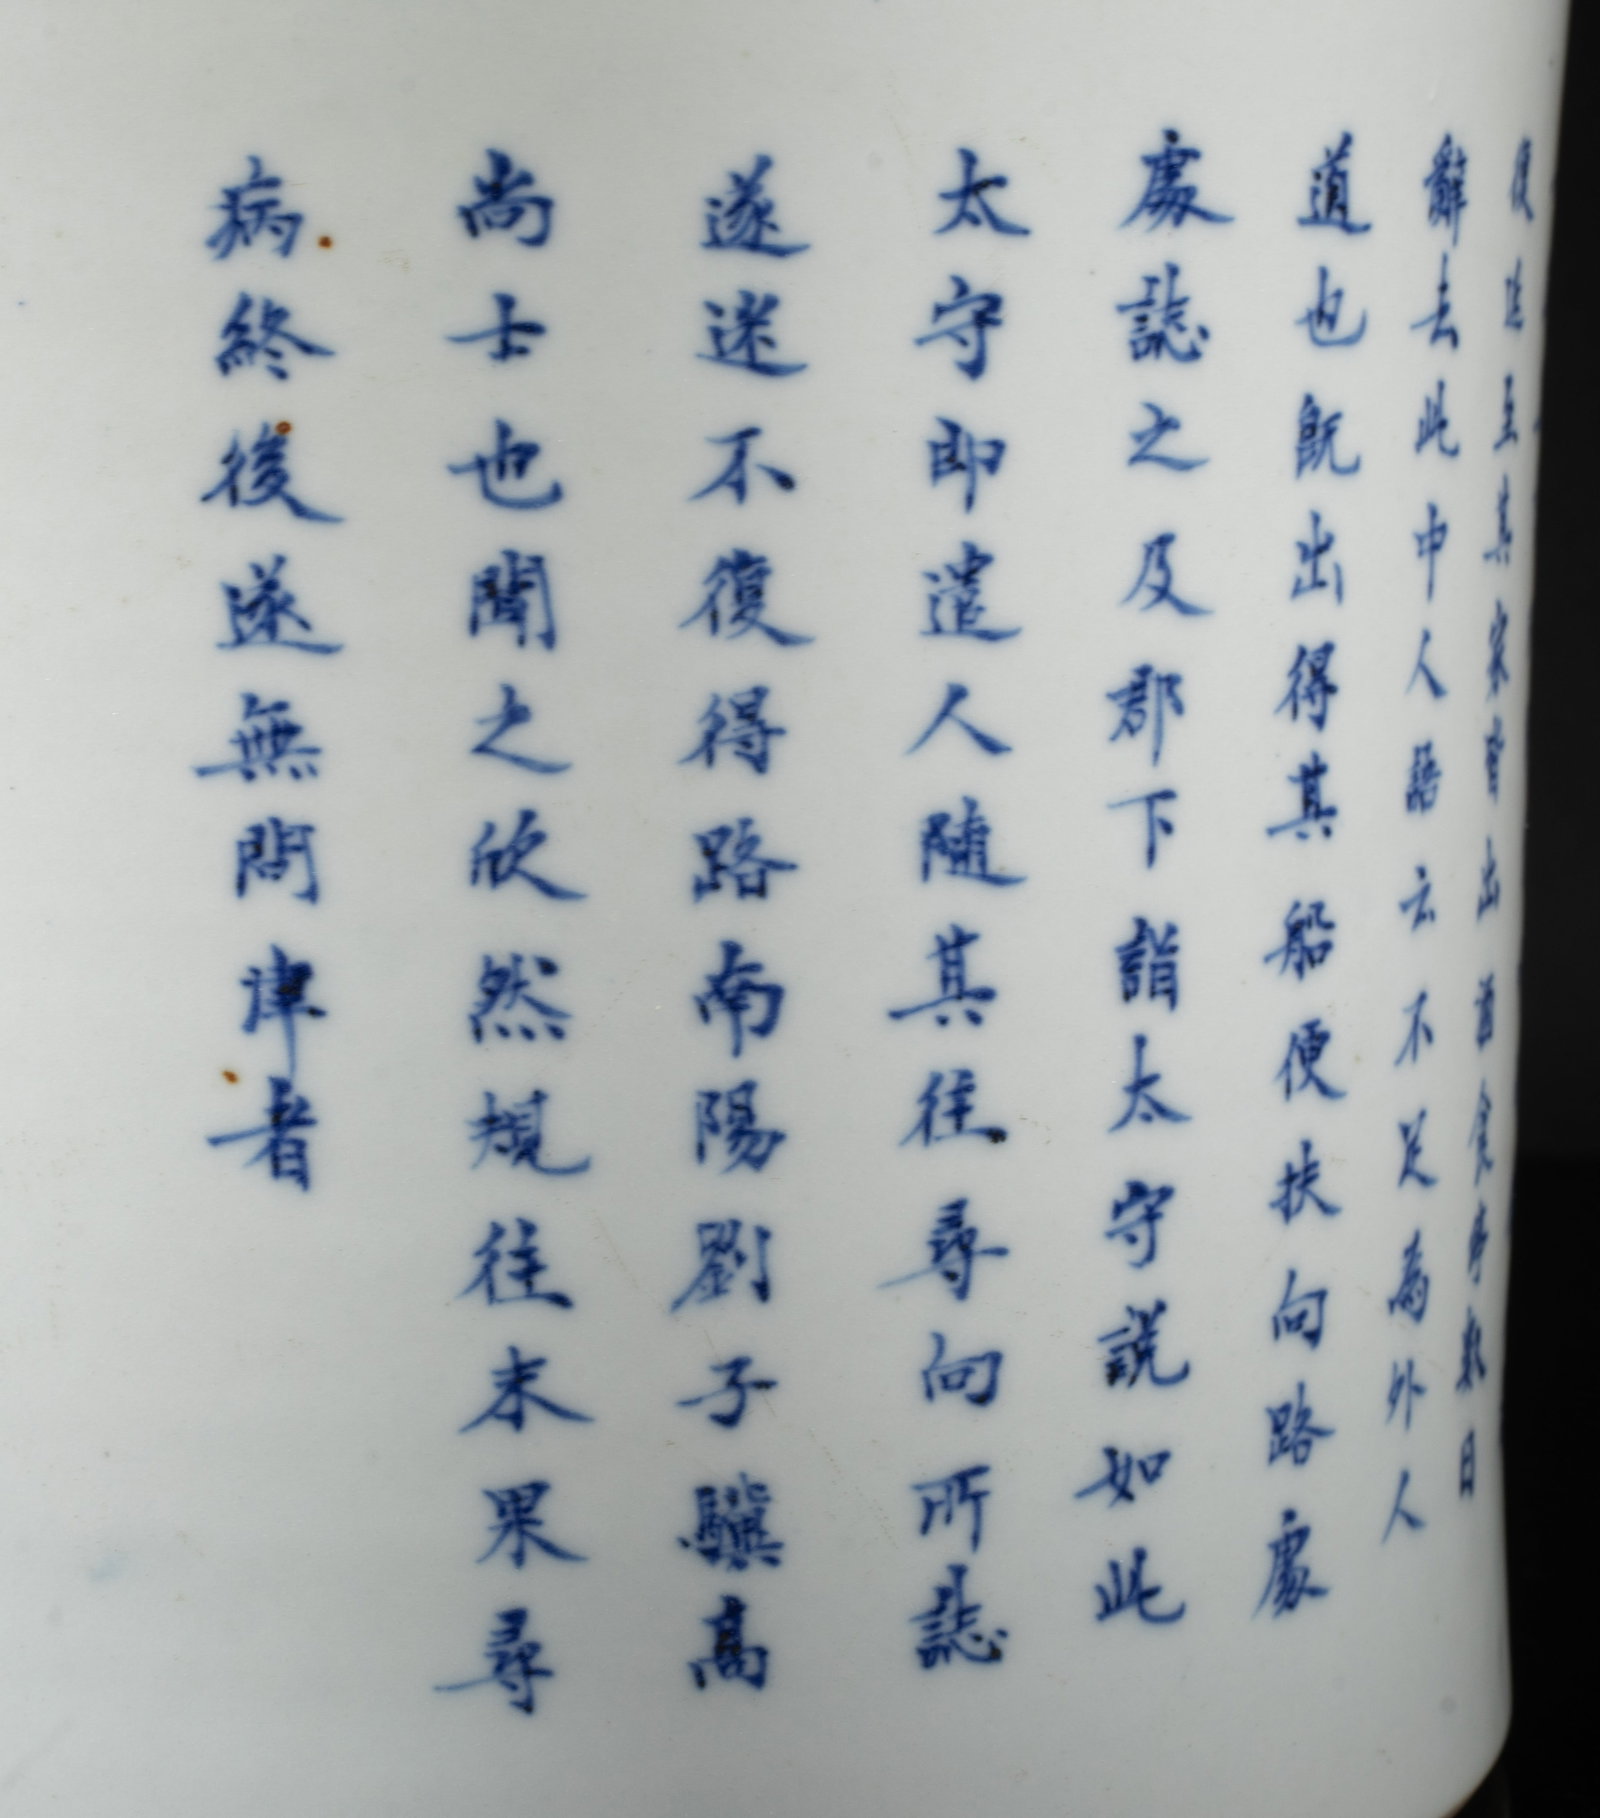 復延至其家皆出酒食停數日
辭去此中人語云不足為外人
道也既出得其船便扶向路處
處誌之及郡下詣太守說如此
太守即遣人隨其往尋向所誌
遂迷不復得路南陽劉子驥高
尚士也聞之欣然規往未果尋
病終後遂無問津者